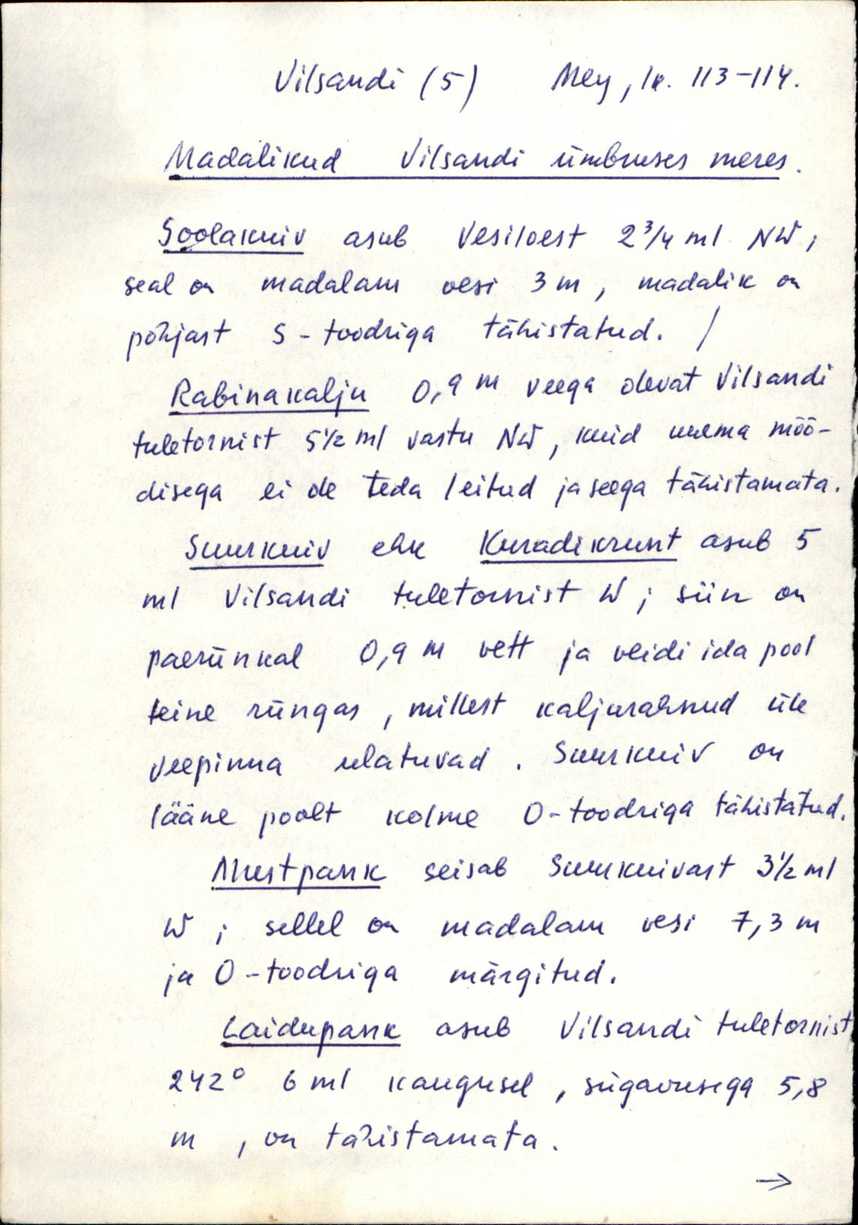 Vilsandi (5) Mey, lk. 113-114.
Madalikud Vilsandi ümbruses meres.
Soolakuiv asub Vesiloest 2 3/4 ml NW;
seal on madalam vesi 3 m, madalik on
põhjast S-toodriga tähistatud. /
Rabinakalju 0,9 m veega olevat Vilsandi
tuletornist 5 1/2 ml vastu NW, kuid uuema möö-
disega ei ole teda leitud ja seega tähistamata.
Suurkuiv ehk Kuradikrunt asub 5
ml Vilsandi tuletornist W; siin on
paerünkal 0,9 m vett ja veidi ida pool
teine rüngas, millest kaljurahnud üle
veepinna ulatuvad. Suurkuiv on
lääne poolt kolme O-toodriga tähistatud.
Mustpank seisab Suurkuivast 3 1/2 ml
W; sellel on madalam vesi 7,3 m
ja O-toodriga märgitud.
Laidupank asub Vilsandi tuletornist
242° 6 ml kaugusel, sügavusega 5,8
m, on tähistamata.
→